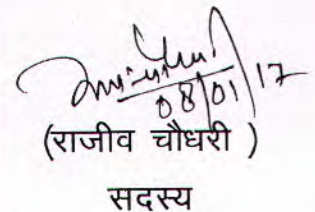 08/01/17
(राजीव चौधरी )
सदस्य